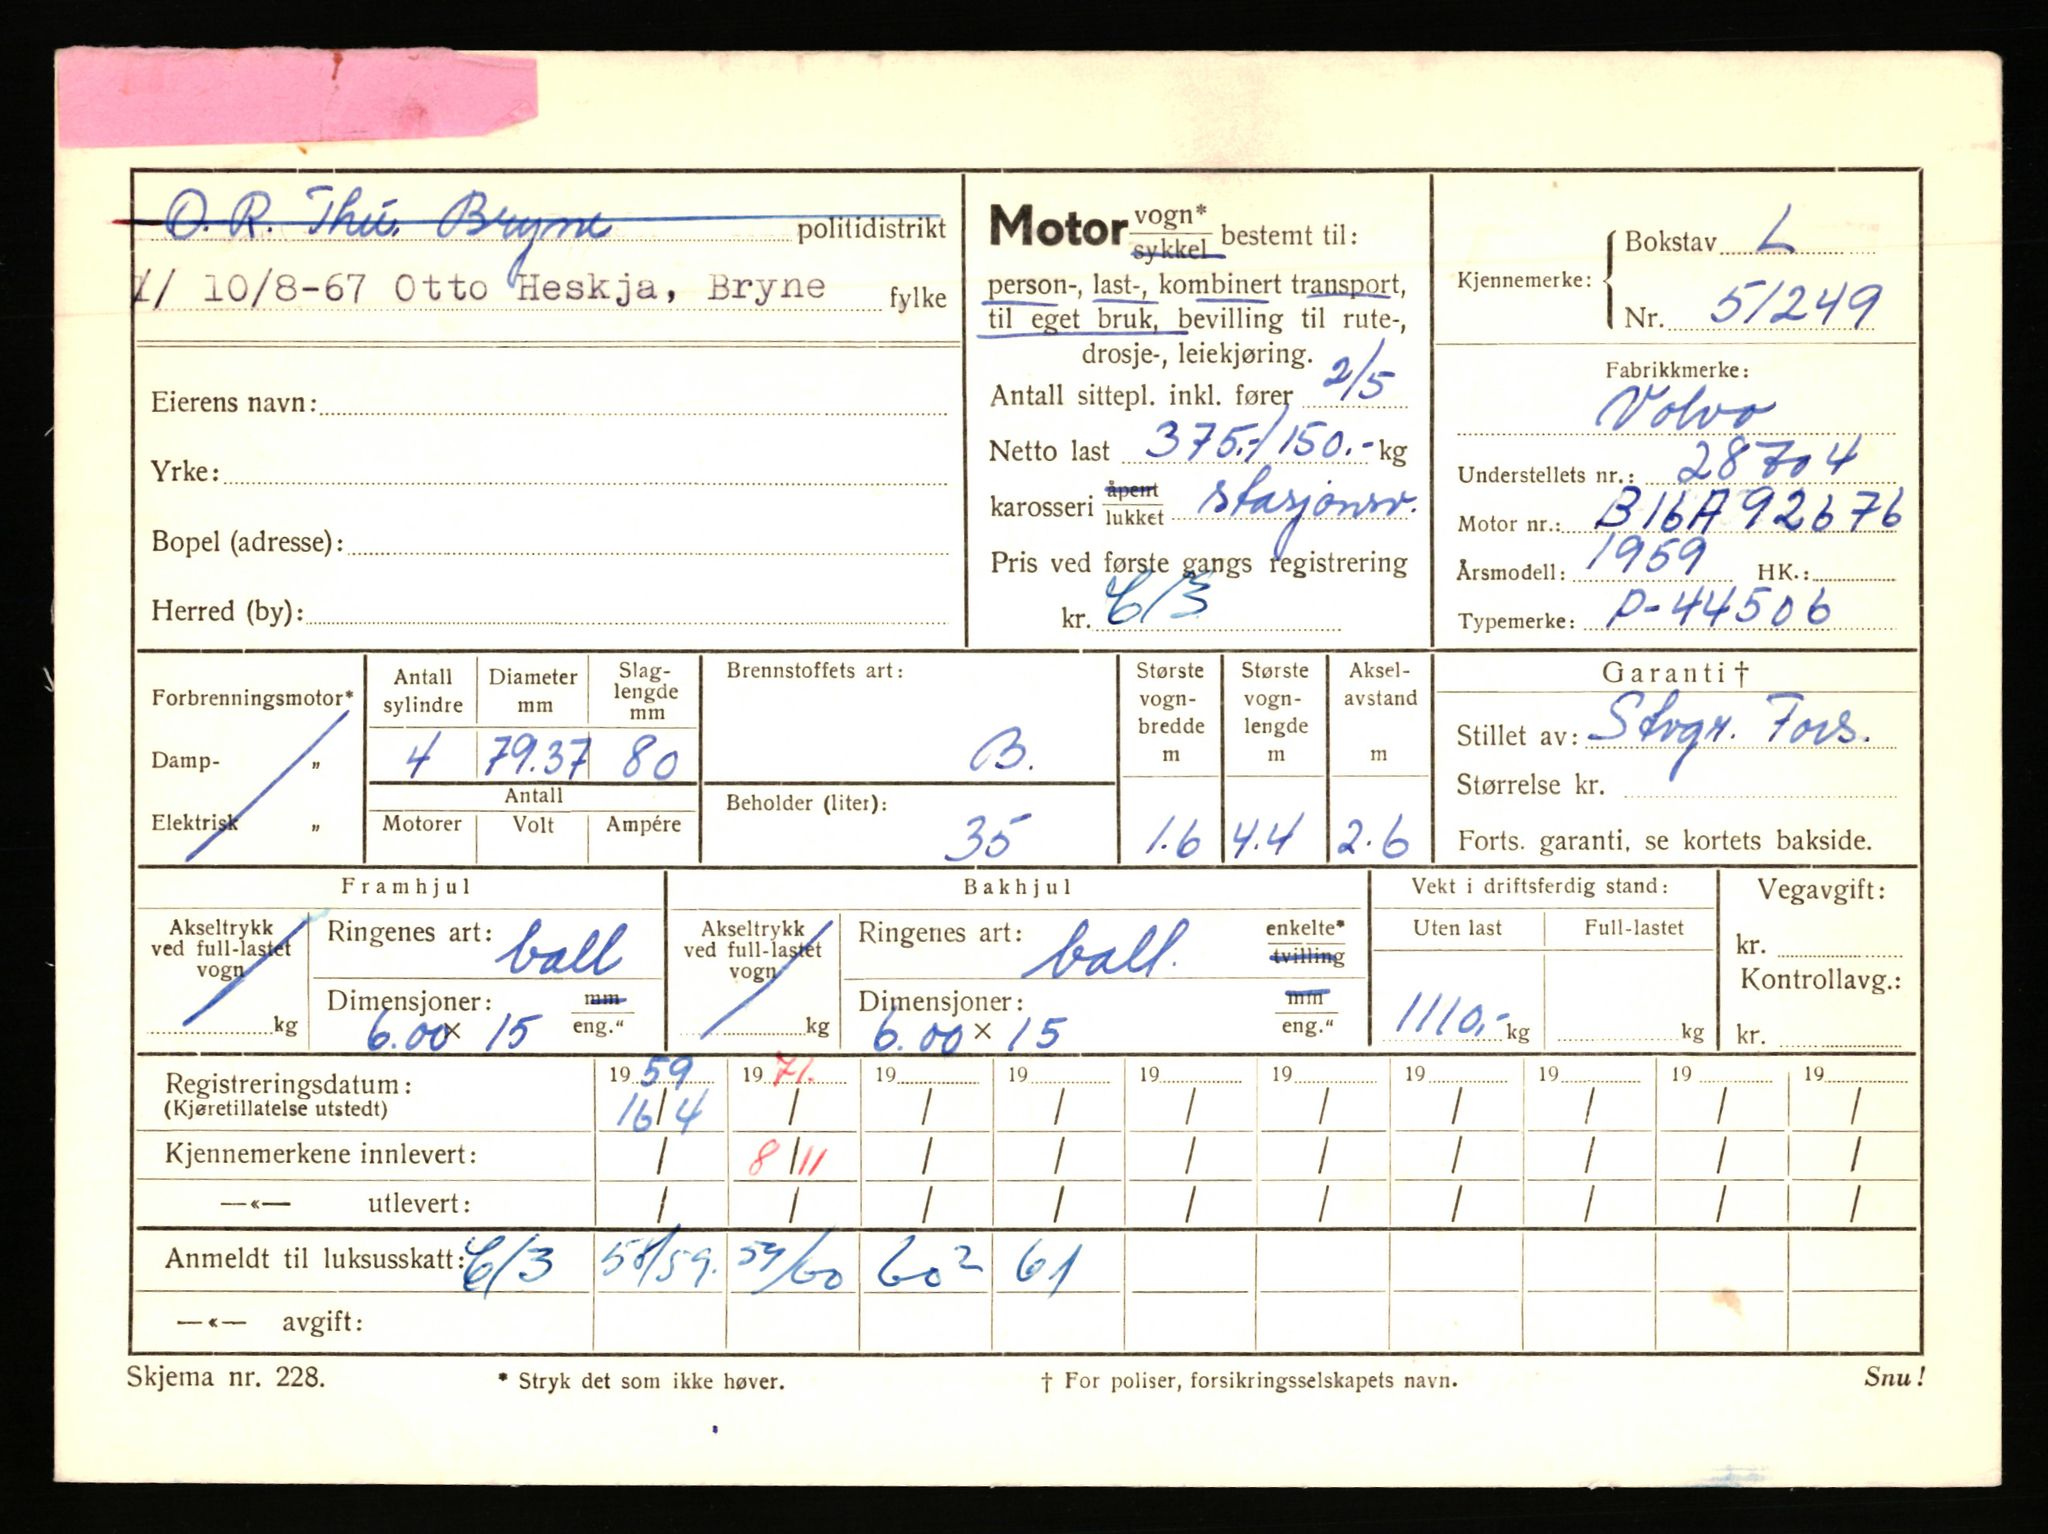 O. R. Thu. Bryne politidistrikt
1/ 10/8-67 Otto Heskja, Bryne fylke
Eierens navn:
Yrke:
Bopel (adresse):
Herred (by):
Motor vogn* / sykkel bestemt til:
person-, last-, kombinert transport,
til eget bruk, bevilling til rute-,
drosje-, leiekjøring.
Antall sittepl. inkl. fører 2/5
Netto last 375.-/150.- kg
karosseri åpent / lukket stasjonsv.
Pris ved første gangs registrering
kr. C/3
Kjennemerke: Bokstav L
Nr. 51249
Fabrikkmerke:
Volvo
Understellets nr.: 28704
Motor nr.: B16A 92676
Årsmodell: 1959 HK.:
Typemerke: P-44506
Forbrenningsmotor*
Damp- „
Elektrisk „
Antall sylindre Diameter mm Slag-lengde mm
4 79.37 80
Antall
Motorer Volt Ampére
Brennstoffets art:
B.
Beholder (liter):
35
Største vogn-bredde m Største vogn-lengde m Aksel-avstand m
1.6 4.4 2.6
Garanti †
Stillet av: Stvgr. Fors.
Størrelse kr.
Forts. garanti, se kortets bakside.
Framhjul
Akseltrykk ved full-lastet vogn kg
Ringenes art: ball
Dimensjoner: mm / eng."
6.00 × 15
Bakhjul
Akseltrykk ved full-lastet vogn kg
Ringenes art: ball. enkelte* / tvilling
Dimensjoner: mm / eng."
6.00 × 15
Vekt i driftsferdig stand:
Uten last Full-lastet
1110,- kg kg
Vegavgift:
kr.
Kontrollavg.:
kr.
Registreringsdatum: 19 59 19 71. 19 19 19 19 19 19 19 19
(Kjøretillatelse utstedt) 16/4 / / / / / / / / /
Kjennemerkene innlevert: / 8/11 / / / / / / / /
—«— utlevert: / / / / / / / / / /
Anmeldt til luksusskatt: C/3 58/59. 59/60 60² 61
—«— avgift:
Skjema nr. 228. * Stryk det som ikke høver. † For poliser, forsikringsselskapets navn. Snu!